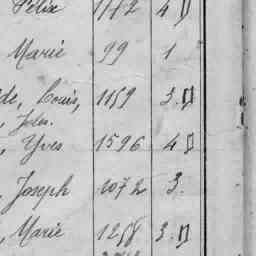 Félix 1172 4
Marie 99 1
de, Louis, 1159 3
Jules.
, Yves 1596 4
, Joseph 1072 3.
, Marie 1258 3